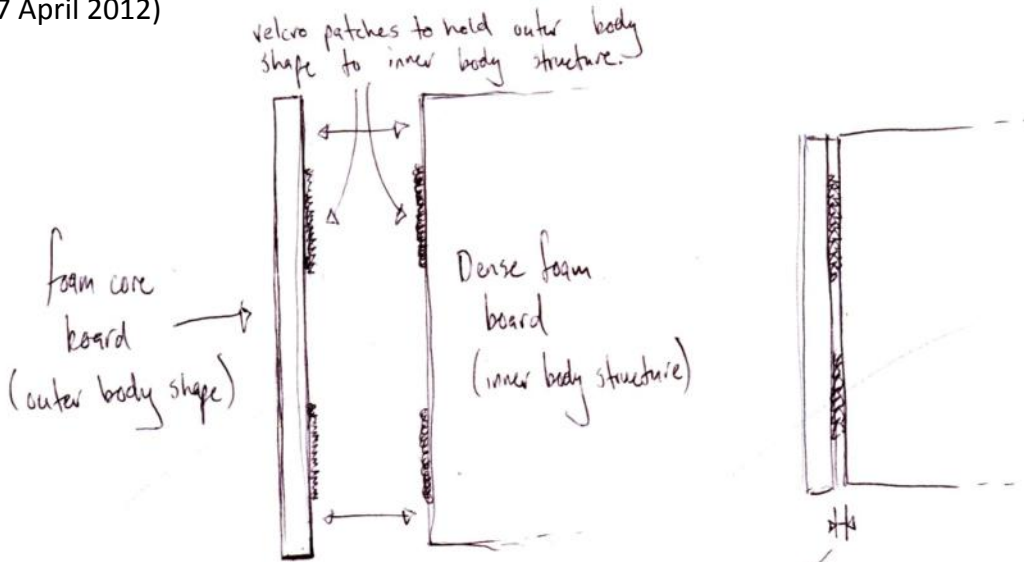 7 April 2012)
velcro patches to hold outer body
shape to inner body structure.
foam core
board
(outer body shape)
Dense foam
board
(inner body structure)